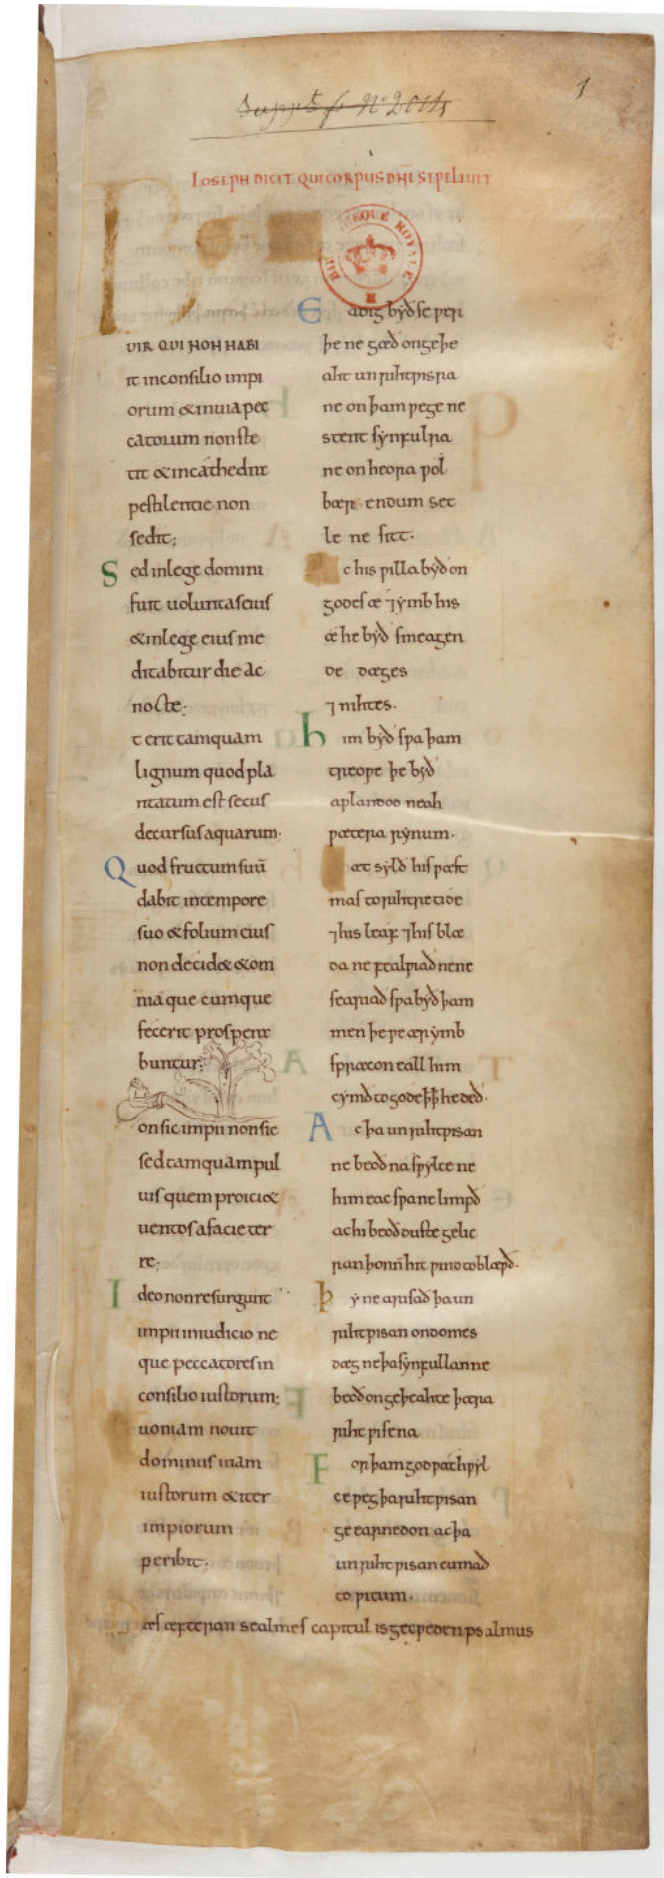 Suppt. f. No. 2014
1
IOSEPH DICIT QUI CORPUS DÑI SEPELIUIT
BIBLIOTHEQUE ROYALE
B
UIR QUI NON HABI
it inconsilio impi
orum & inuia pec
catorum non ste
tit & incathedra
pestilentie non
sedit;
Sed inlege domini
fuit uoluntas eius
& inlege eius me
ditabitur die ac
nocte;
t erit tamquam
lignum quod pla
ntatum est secus
decursus aquarum;
Quod fructum suū
dabit intempore
suo & folium eius
non decid& & om
nia que cumque
fecerit prospera
buntur;
on sic impii non sic
sed tamquam pul
uis quem proici&
uentos a facie ter
re;
Ideo non resurgunt
impii iniudicio ne
que peccatores in
consilio iustorum;
uoniam nouit
dominus uiam
iustorum & iter
impiorum
peribit;
Eadig byð se ƿer
þe ne gæð on geþe
aht unrihtƿisra
ne on þam ƿege ne
stent synfulra
ne on heora ƿol
bærendum set
le ne sitt.
c his ƿilla byð on
godes æ ⁊ ymb his
æ he byð smeagen
de dæges
⁊ nihtes.
him byð sƿa þam
treoƿe þe byð
aplantod neah
ƿætera rynum.
æt sylð his ƿæst
mas to rihtre tide
⁊ his leaf ⁊ his blæ
da ne fealƿiað ne ne
seariað sƿa byð þam
men þe ƿe ær ymb
spræcon eall him
cymð to gode ꝥ ꝥ he deð.
Ac þa unrihtƿisan
ne beoð na sƿylce ne
him eac sƿa ne limpð
ac hi beoð duste gelic
ran þonñ hit ƿind toblæƿð.
þy ne arisað þa un
rihtƿisan on domes
dæg ne þa synfullan ne
beoð on geþeahte þæra
rihtƿisena
For þam god ƿat hƿyl
ce ƿeg þa rihtƿisan
geearnedon ac þa
unrihtƿisan cumað
to ƿitum.
æs æfteran sealmes capitul is gecƿeden psalmus